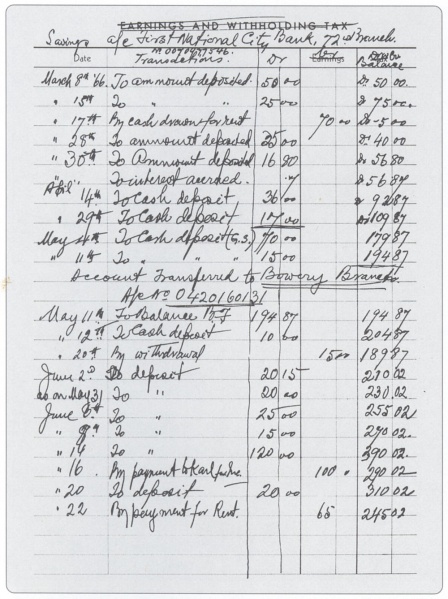 EARNINGS AND WITHHOLDING TAX
Savings a/c First National City Bank, 72nd Branch.
Date Transactions Dr Earnings Balance
March 8th 66. To ammount deposited. 50 00 Dr 50 00.
" 15th To " " 25 00 Dr 75 00
" 17th By cash drawn for rent 70 00 Dr 5 00
" 28th To ammount deposited 35 00 Dr 40 00
" 30th To Ammount deposited 16 80 Dr 56 80
" " To interest accrued. 7 Dr 56 87
April 14th To Cash deposit 36 00 Dr 92 87
" 29th To Cash deposit 17 00 Dr 109 87
May 4th To Cash deposit (G.S.) 70 00 179 87
" 11th To " " 15 00 194 87
Account Transferred to Bowery Branch.
A/c No 0420160131
May 11th To Balance B.F 194 87 194 87
" 12th To Cash deposit 10 00 204 87
" 20th By withdrawal 15 00 189 87
June 2nd To deposit 20 15 210 02
as on May 31 To " 20 00 230 02
June 6th To " 25 00 255 02
" 8th To " 15 00 270 02
" 14 To " 120 00 390 02
" 16 By payment to Karl 100 290 02
" 20 To deposit 20 00 310 02
" 22 By payment for Rent. 65 245 02